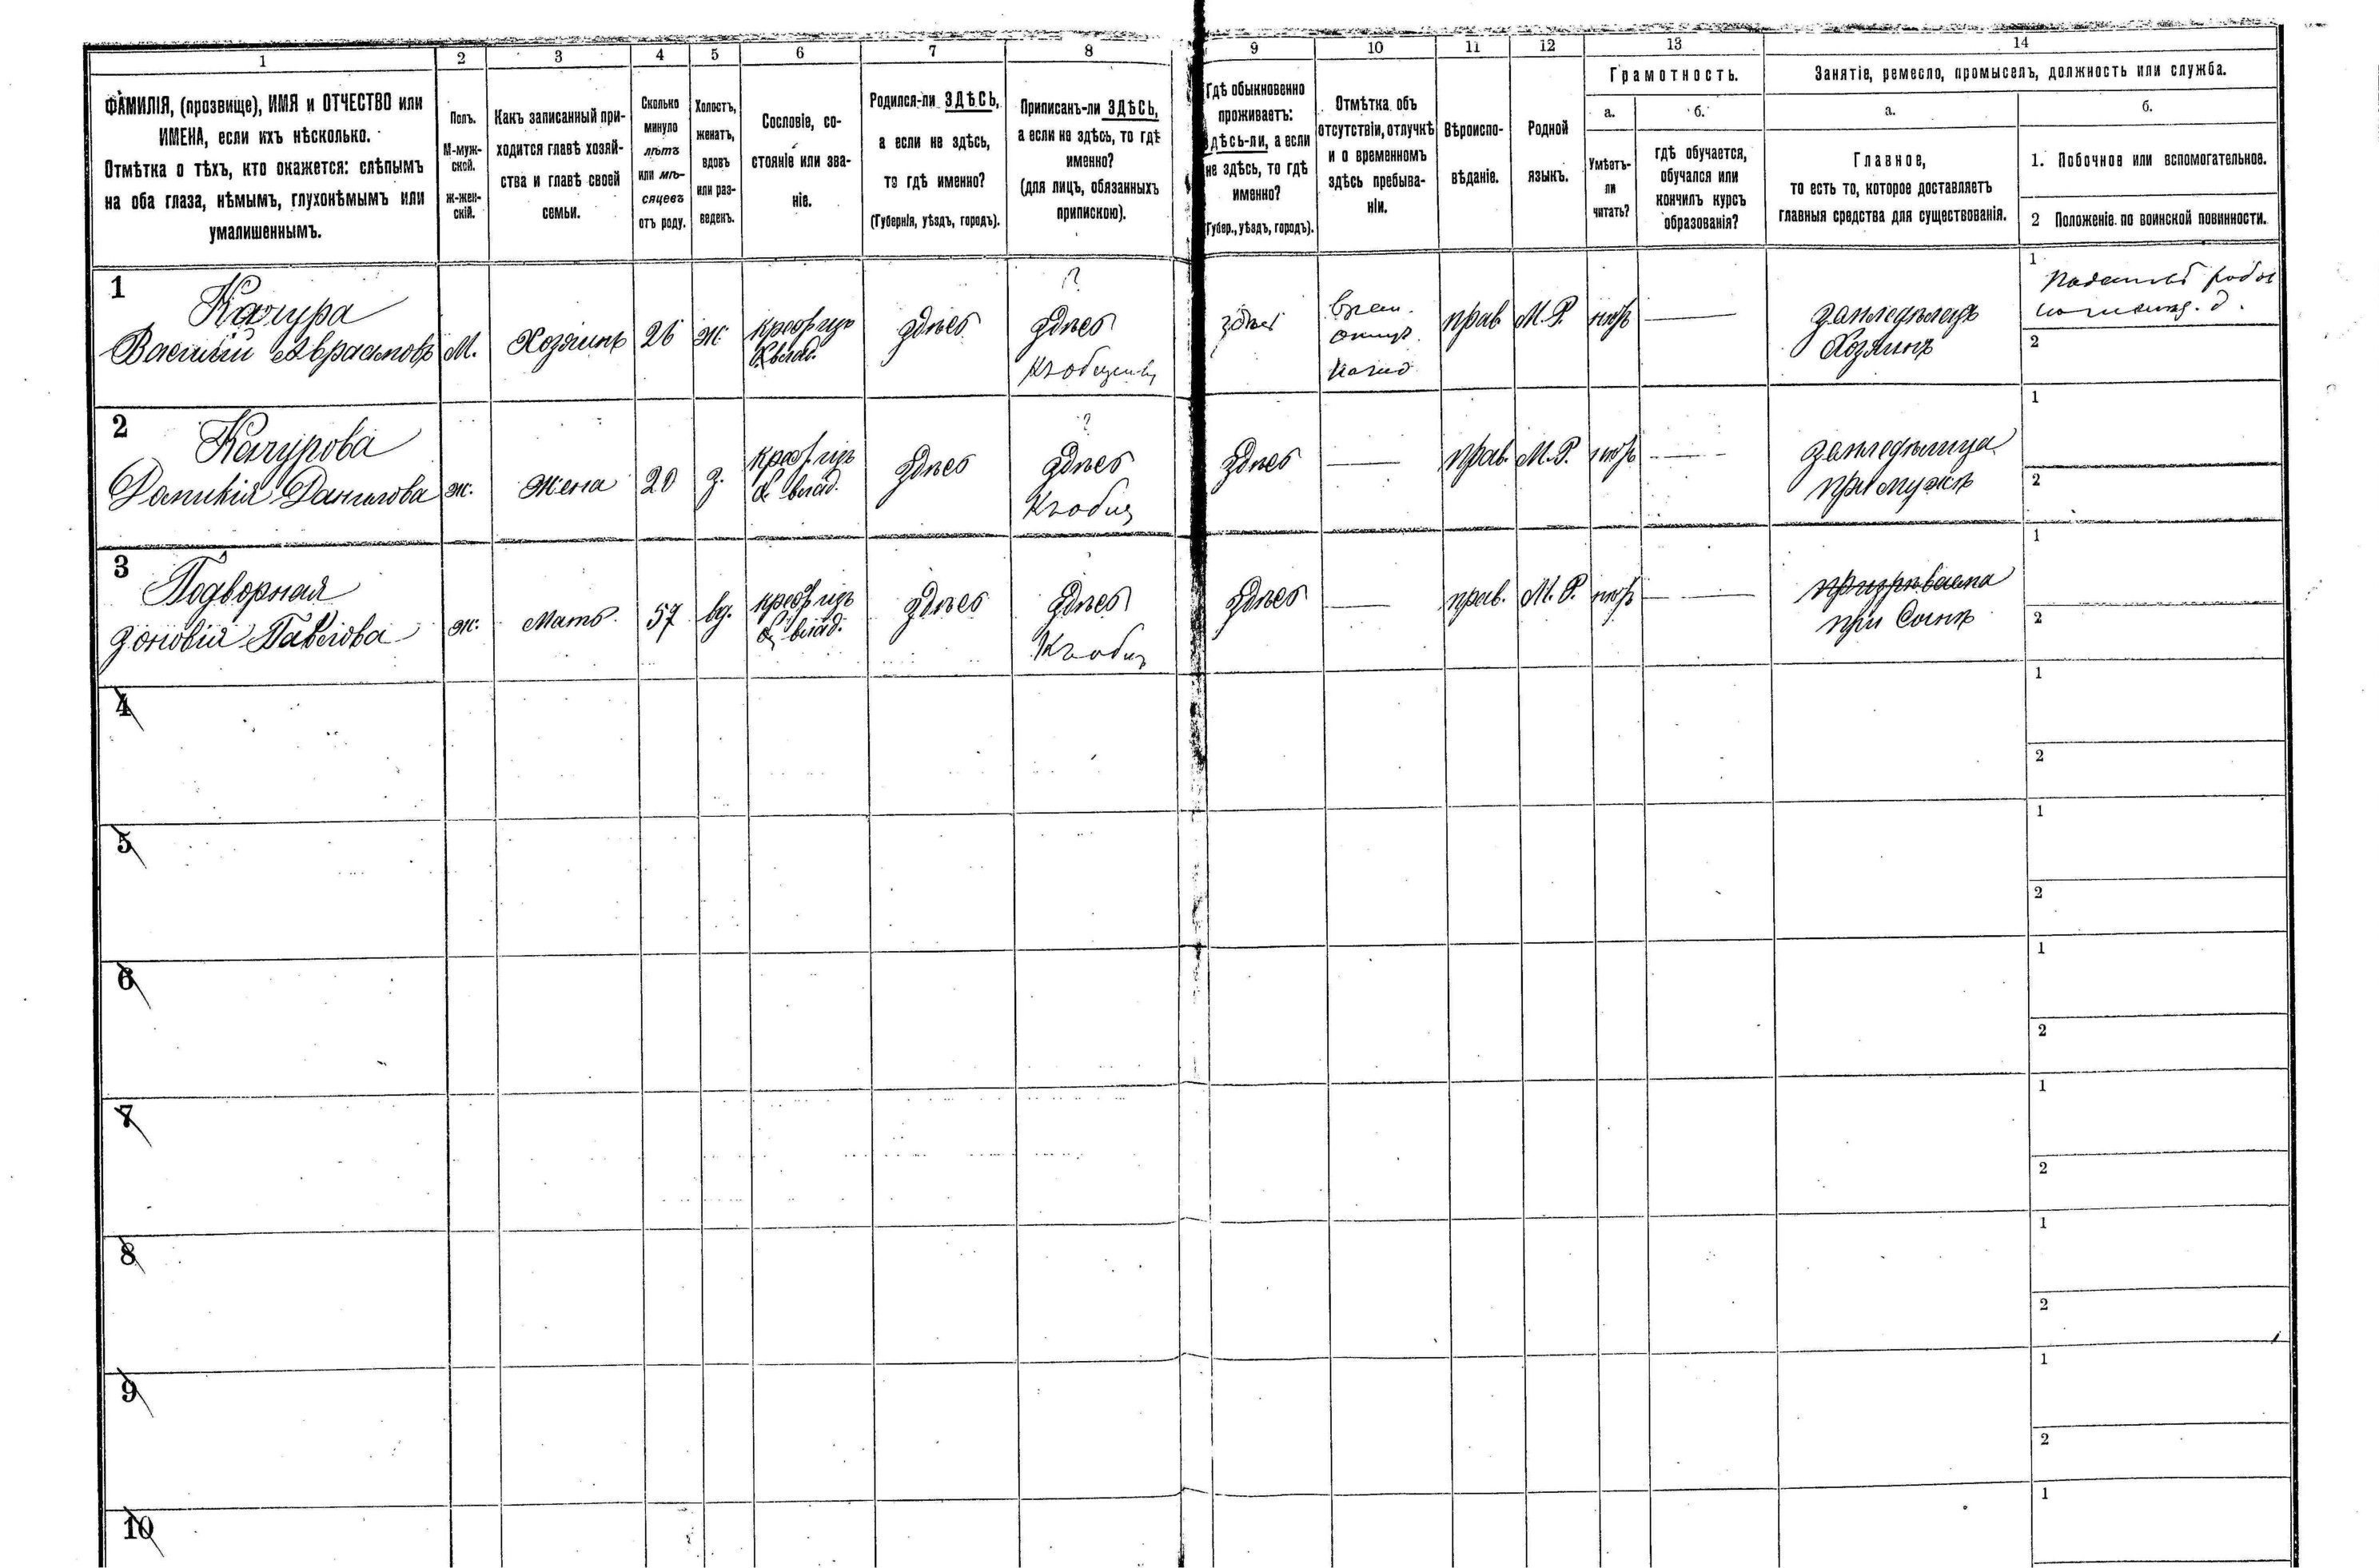 1 2 3 4 5 6 7 8 9 10 11 12 13 14
ФАМИЛІЯ, (прозвище), ИМЯ и ОТЧЕСТВО или
ИМЕНА, если ихъ нѣсколько.
Отмѣтка о тѣхъ, кто окажется: слѣпымъ
на оба глаза, нѣмымъ, глухонѣмымъ или
умалишеннымъ.
Полъ.
М-муж-
ской.
ж-жен-
скій.
Какъ записанный при-
ходится главѣ хозяй-
ства и главѣ своей
семьи.
Сколько
минуло
лѣтъ
или мѣ-
сяцевъ
отъ роду.
Холостъ,
женатъ,
вдовъ
или раз-
веденъ.
Сословіе, со-
стояніе или зва-
ніе.
Родился-ли ЗДѢСЬ,
а если не здѣсь,
то гдѣ именно?
(Губернія, уѣздъ, городъ).
Приписанъ-ли ЗДѢСЬ,
а если не здѣсь, то гдѣ
именно?
(для лицъ, обязанныхъ
припискою).
Гдѣ обыкновенно
проживаетъ:
здѣсь-ли, а если
не здѣсь, то гдѣ
именно?
(Губер., уѣздъ, городъ).
Отмѣтка объ
отсутствіи, отлучкѣ
и о временномъ
здѣсь пребыва-
ніи.
Вѣроиспо-
вѣданіе.
Родной
языкъ.
Грамотность.
а.
Умѣетъ-
ли
читать?
б.
гдѣ обучается,
обучался или
кончилъ курсъ
образованія?
Занятіе, ремесло, промыселъ, должность или служба.
а.
Главное,
то есть то, которое доставляетъ
главныя средства для существованія.
б.
1. Побочное или вспомогательное.
2 Положеніе по воинской повинности.
1
Качура
Василій Авраамовъ
М.
Хозяинъ
26
ж.
здѣсь
?
здѣсь
здѣсь
прав
М. Р.
земледѣлецъ
Хозяинъ
1
2
2
Качурова
Данилова
ж.
Жена
20
з.
здѣсь
?
здѣсь
здѣсь
прав.
М. Р.
при мужѣ
1
2
3
Подворная
Зоновія Павлова
ж.
Мать
57
вд.
здѣсь
здѣсь
здѣсь
прав.
М. Р.
призрѣваема
при Сынѣ
1
2
4
1
2
5
1
2
6
1
2
7
1
2
8
1
2
9
1
2
10
1